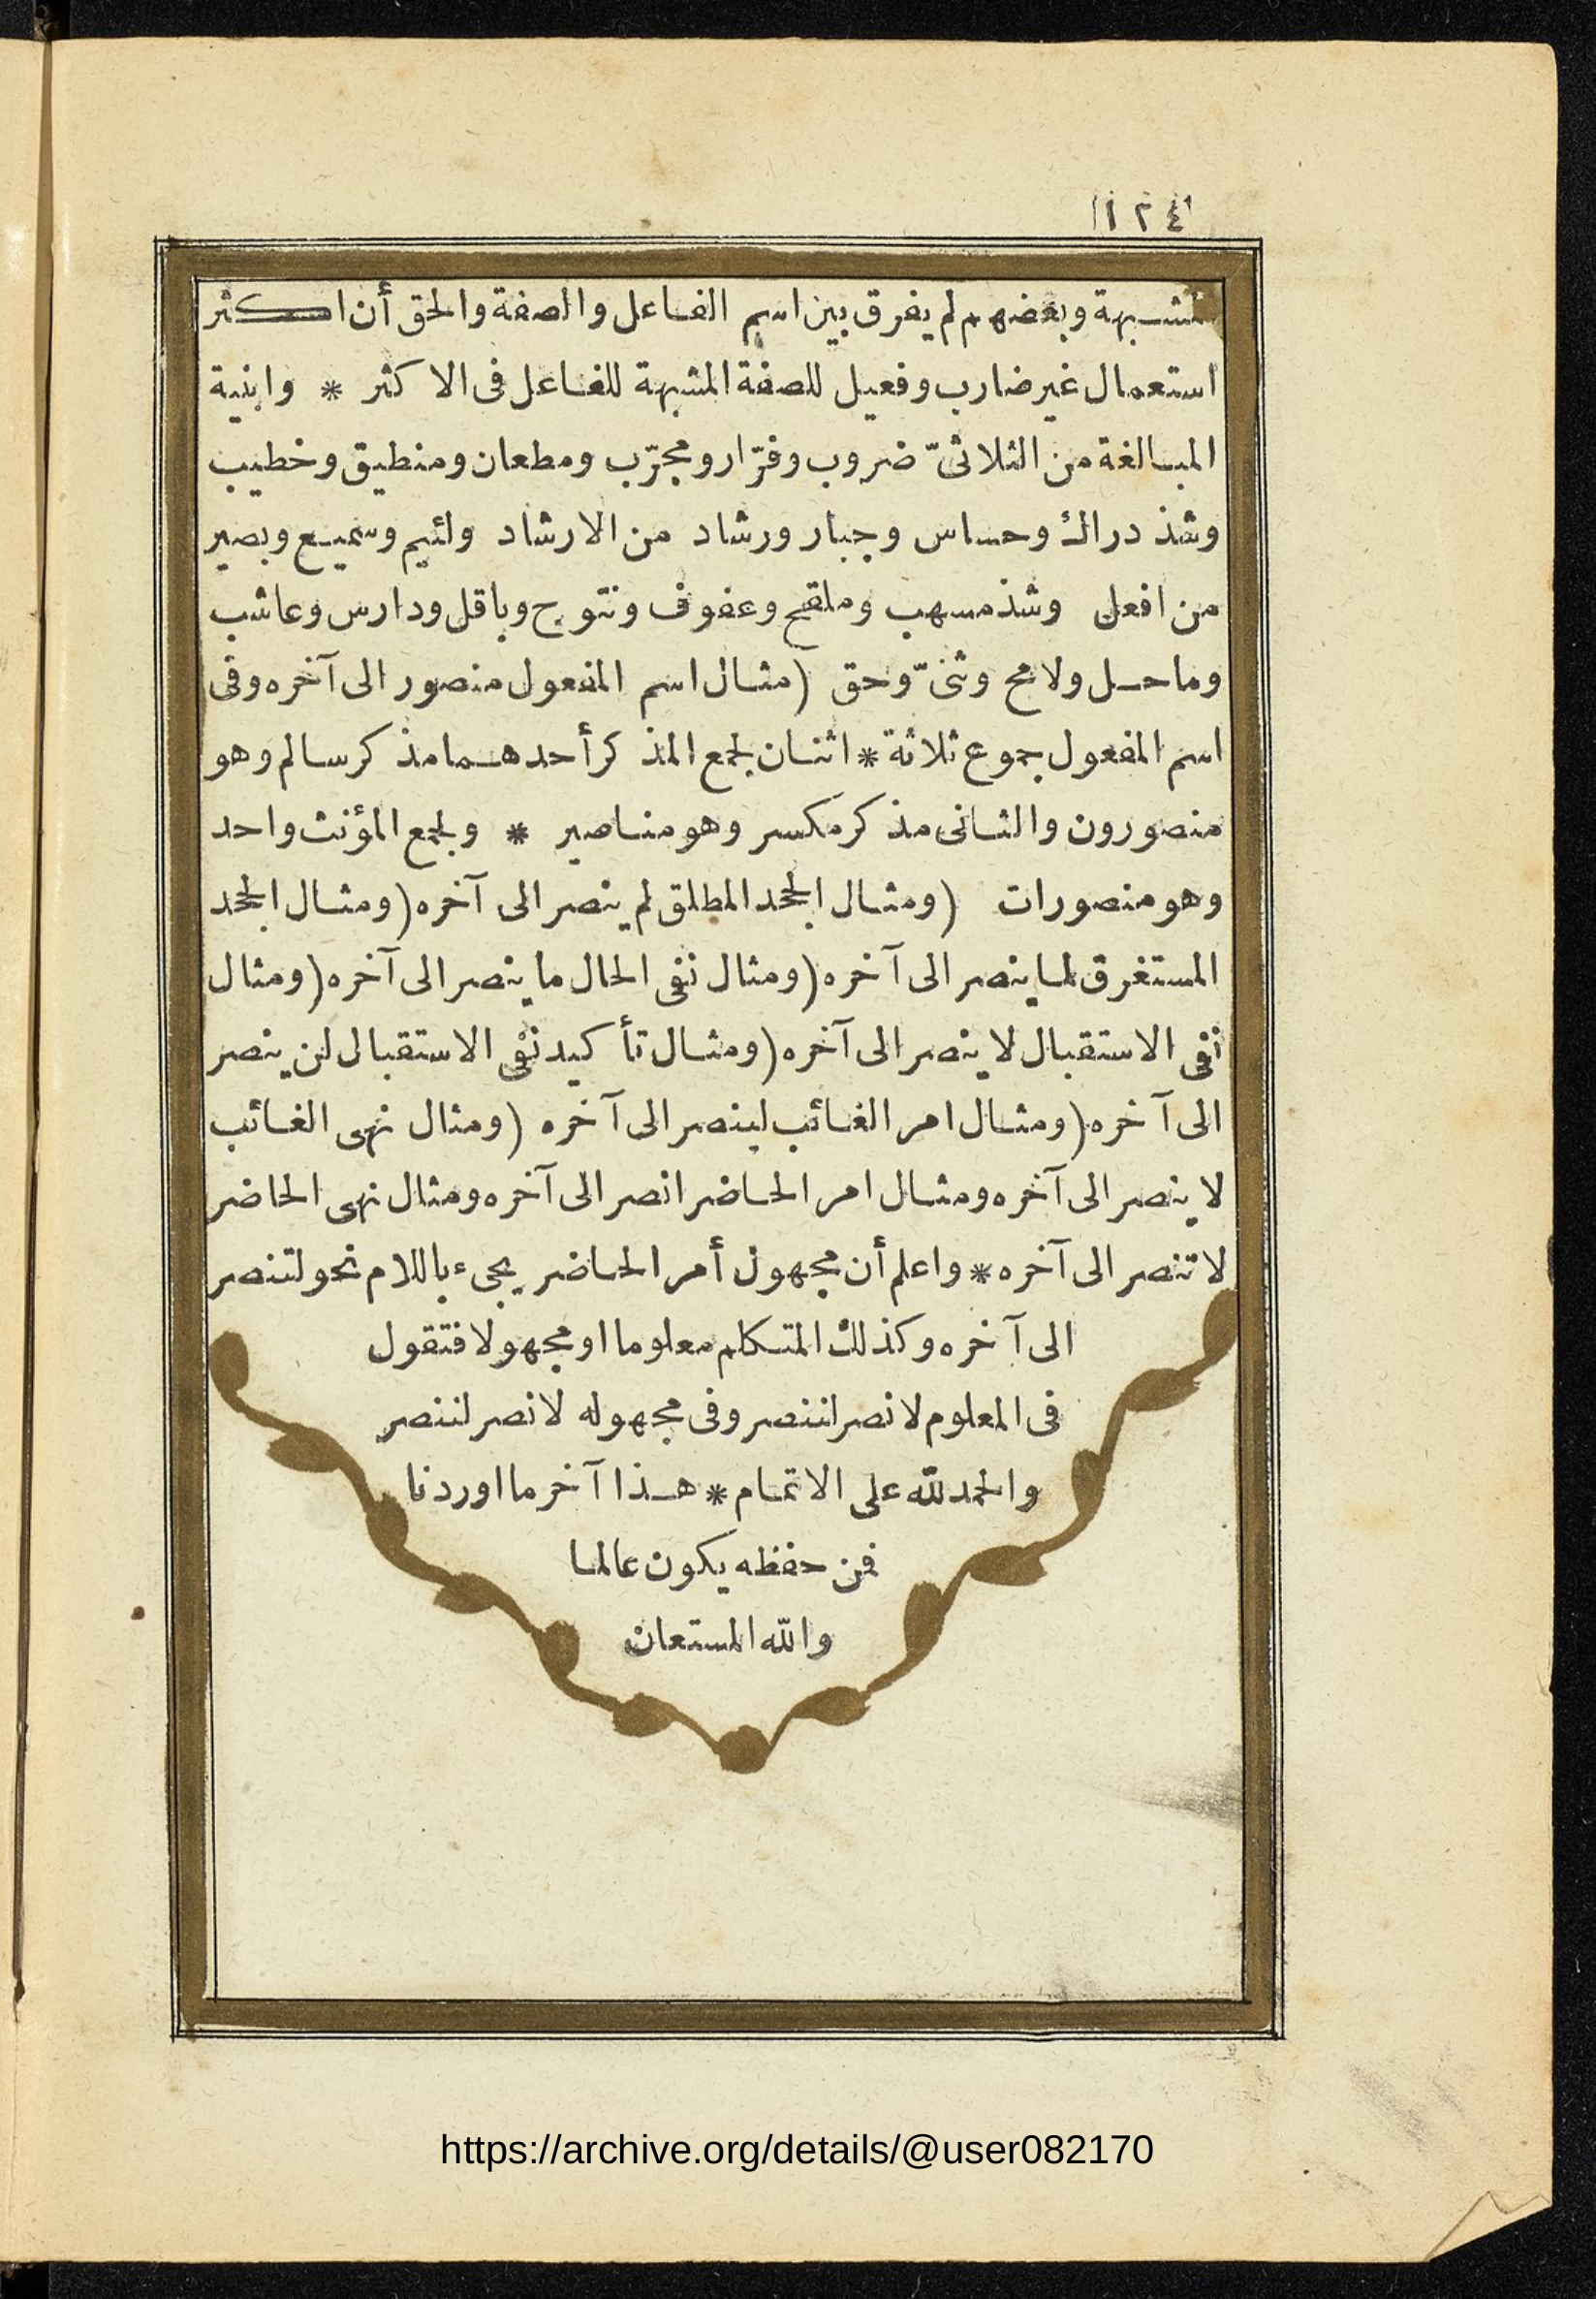 ١٢٤
مشبهة وبعضهم لم يفرق بين اسم الفاعل والصفة والحق أن اكثر
استعمال غير ضارب وفعيل للصفة المشبهة للفاعل فى الاكثر * وابنية
المبالغة من الثلاثىّ ضروب وفرّار ومجرّب ومطعان ومنطيق وخطيب
وشذ دراك وحساس وجبار ورشاد من الارشاد ولئيم وسميع وبصير
من افعل وشذ مسهب وملقح وعفوف ونتوج وباقل ودارس وعاشب
وماحل ولامح وثنىّ وحق (مثال اسم المفعول منصور الى آخره وفى
اسم المفعول جموع ثلاثة * اثنان لجمع المذكر أحدهما مذكر سالم وهو
منصورون والثانى مذكر مكسر وهو مناصير * ولجمع المؤنث واحد
وهو منصورات (ومثال الجحد المطلق لم ينصر الى آخره (ومثال الجحد
المستغرق لما ينصر الى آخره (ومثال نفى الحال ما ينصر الى آخره (ومثال
نفى الاستقبال لا ينصر الى آخره (ومثال تأكيد نفى الاستقبال لن ينصر
الى آخره (ومثال امر الغائب لينصر الى آخره (ومثال نهى الغائب
لا ينصر الى آخره ومثال امر الحاضر انصر الى آخره ومثال نهى الحاضر
لا تنصر الى آخره * واعلم أن مجهول أمر الحاضر يجىء باللام نحو لتنصر
الى آخره وكذلك المتكلم معلوما او مجهولا فتقول
فى المعلوم لانصر لننصر وفى مجهوله لانصر لننصر
والحمد لله على الاتمام * هذا آخر ما اوردنا
فمن حفظه يكون عالما
والله المستعان
https://archive.org/details/@user082170